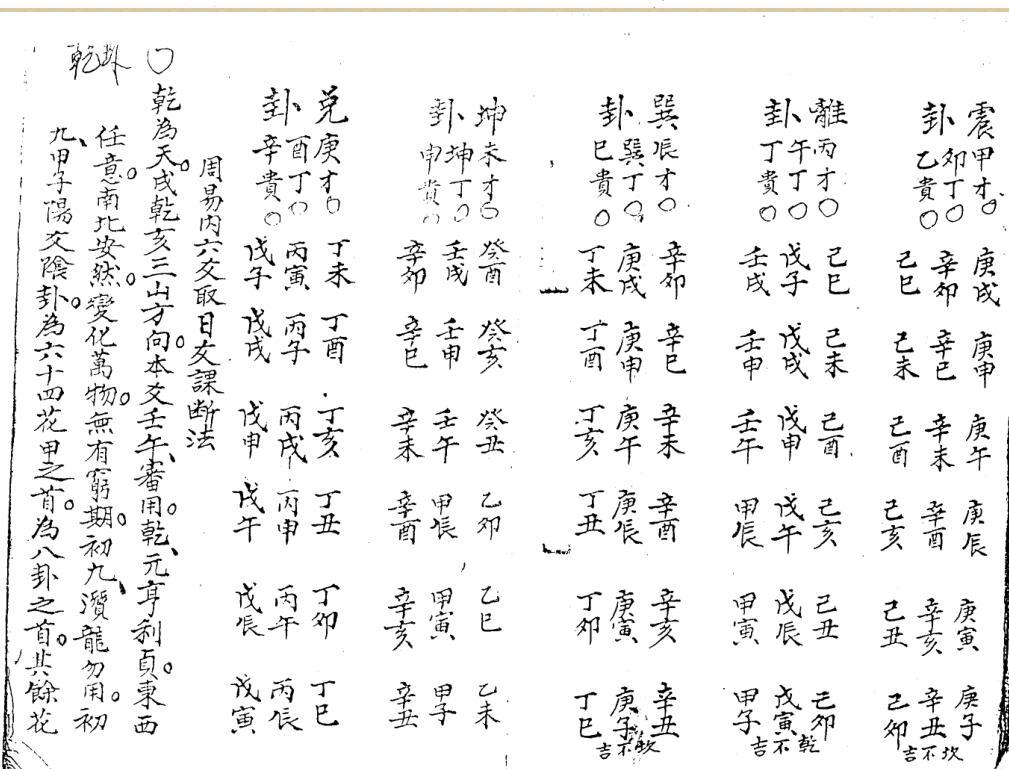 震甲才〇 庚戌 庚申 庚午 庚辰 庚寅 庚子
卯丁〇 辛卯 辛巳 辛未 辛酉 辛亥 辛丑
卦乙貴〇 己巳 己未 己酉 己亥 己丑 己卯
坎不吉
離丙才〇 己巳 己未 己酉 己亥 己丑 己卯
午丁〇 戊子 戊戌 戊申 戊午 戊辰 戊寅
卦丁貴〇 壬戌 壬申 壬午 甲辰 甲寅 甲子
乾不吉
巽辰才〇 辛卯 辛巳 辛未 辛酉 辛亥 辛丑
巽丁〇 庚戌 庚申 庚午 庚辰 庚寅 庚子
卦巳貴〇 丁未 丁酉 丁亥 丁丑 丁卯 丁巳
坎不吉
坤未才〇 癸酉 癸亥 癸丑 乙卯 乙巳 乙未
坤丁〇 壬戌 壬申 壬午 甲辰 甲寅 甲子
卦申貴〇 辛卯 辛巳 辛未 辛酉 辛亥 辛丑
兌庚才〇 丁未 丁酉 丁亥 丁丑 丁卯 丁巳
酉丁〇 丙寅 丙子 丙戌 丙申 丙午 丙辰
卦辛貴〇 戊子 戊戌 戊申 戊午 戊辰 戊寅
周易内六爻取日交課断法
〇乾為天。戌乾亥三山方向。本爻壬午、審用。乾、元亨利貞。東西
乾卦
任意。南北安然。變化萬物。無有窮期。初九、潛龍勿用。初
九、甲子陽爻陰卦。為六十四花甲之首。為八卦之首。其餘花